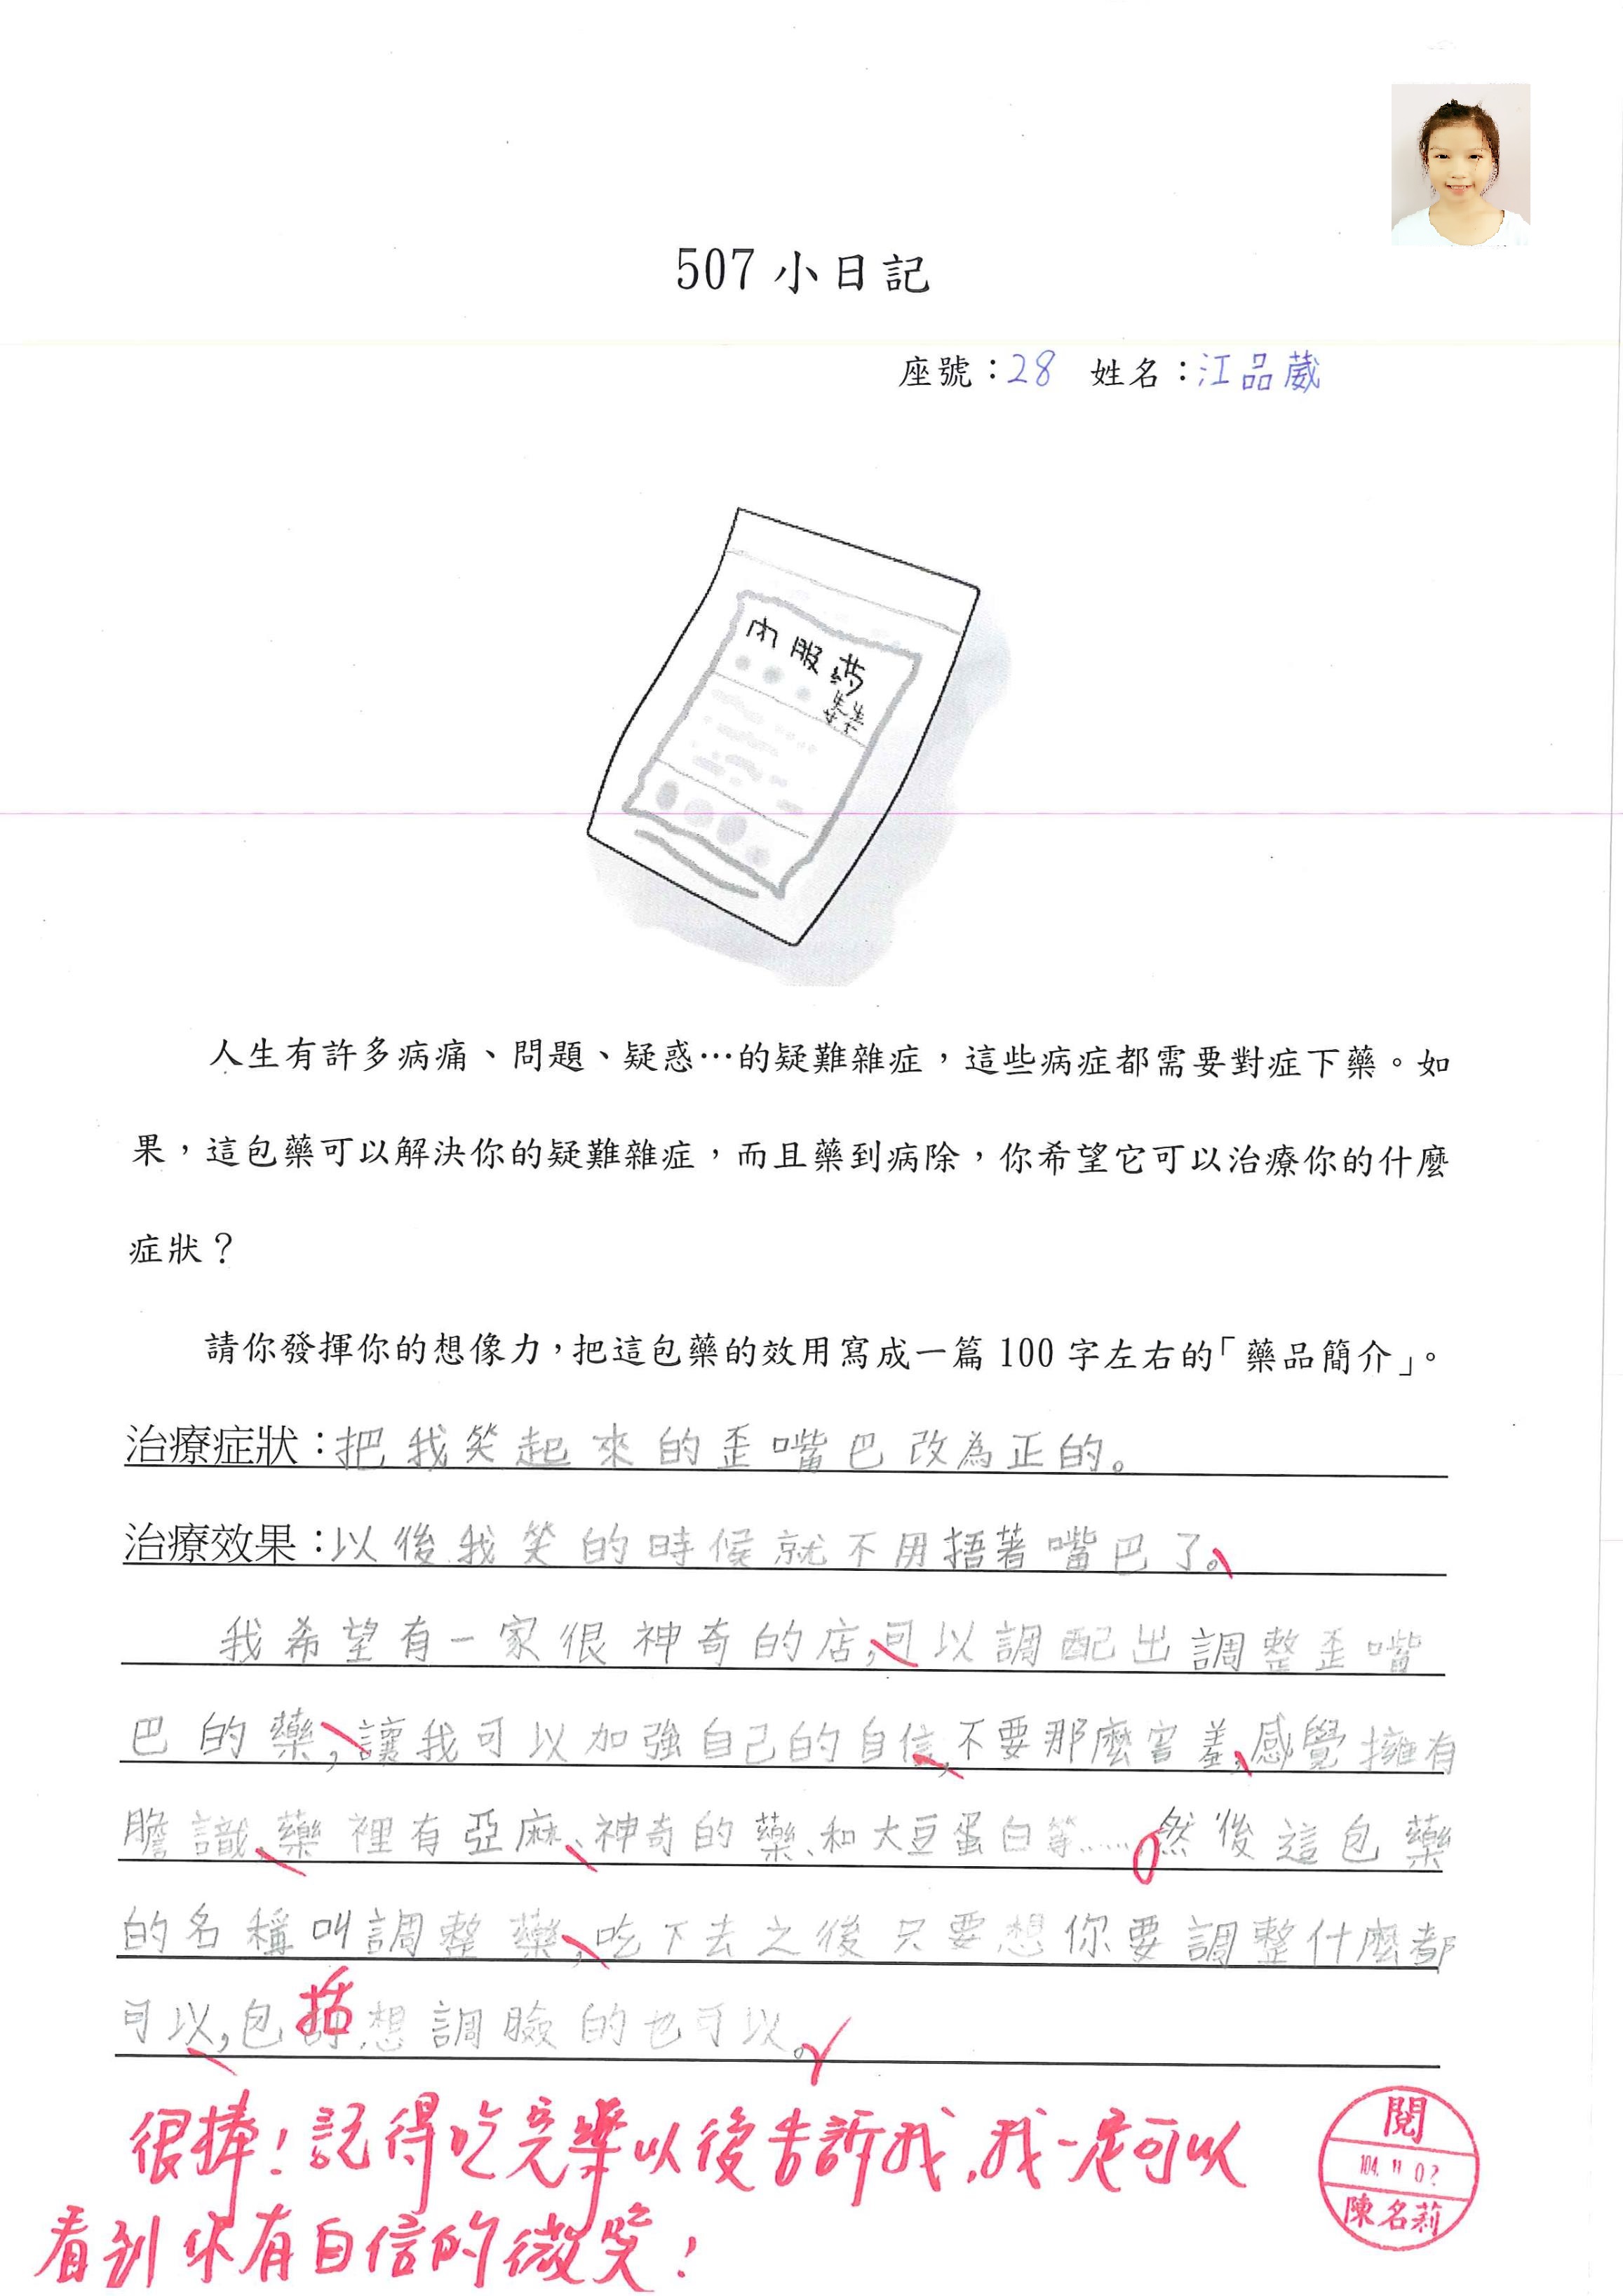 507 小日記
座號：28 姓名：江品葳
內服藥
人生有許多病痛、問題、疑惑…的疑難雜症，這些病症都需要對症下藥。如
果，這包藥可以解決你的疑難雜症，而且藥到病除，你希望它可以治療你的什麼
症狀？
請你發揮你的想像力，把這包藥的效用寫成一篇 100 字左右的「藥品簡介」。
治療症狀：把我笑起來的歪嘴巴改為正的。
治療效果：以後我笑的時候就不用捂著嘴巴了。
我希望有一家很神奇的店，可以調配出調整歪嘴
巴的藥，讓我可以加強自己的自信，不要那麼害羞，感覺擁有
膽識、藥裡有亞麻、神奇的藥、和大豆蛋白等……。然後這包藥
的名稱叫調整藥，吃下去之後只要想你要調整什麼都
可以，包括想調臉的也可以。
很棒！記得吃完藥以後告訴我，我一定可以
看到你有自信的微笑！
閱
104. 11 02
陳名莉